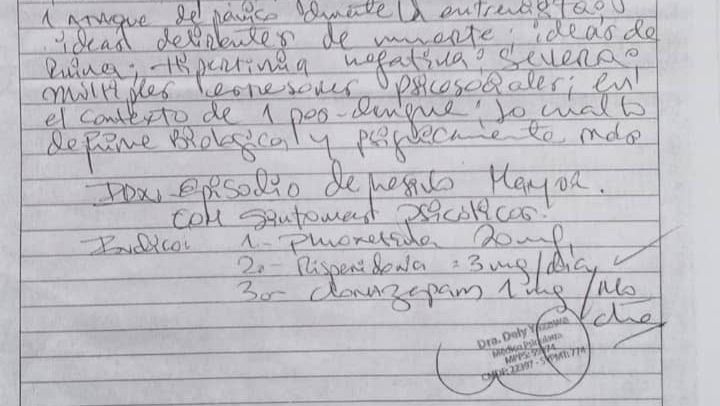 1 ataque de pánico durante la entrevista,
ideas delirantes de muerte, ideas de
Ruina; Hipertimia negativa severa
múltiples estresores psicosociales; en
el contexto de 1 pos-dengue, lo cual lo
define Biológica y psíquicamente
IDx, Episodio depresivo Mayor.
con síntomas psicóticos.
Indico: 1.- Fluoxetina 20mg,
2.- Risperidona = 3 mg/día
3.- clonazepam 1 mg /No
che
Dra. Daly
Médico Psiquiatra
MPPS:
CMDF: 22397